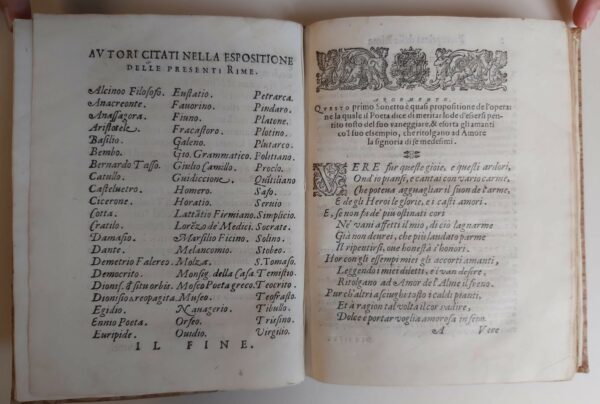 AVTORI CITATI NELLA ESPOSITIONE
DELLE PRESENTI RIME.
Alcinoo Filosofo. Eustatio. Petrarca.
Anacreonte. Fauorino. Pindaro.
Anassagora. Fiuno. Platone.
Aristotele. Fracastoro. Plotino.
Basilio. Galeno. Plutarco.
Bembo. Gio. Grammatico. Politiano.
Bernardo Tasso. Giulio Camillo. Proclo.
Catullo. Guidiccione. Quītiliano
Casteluetro. Homero. Safo.
Cicerone. Horatio. Seruio
Cotta. Lattātio Firmiano. Simplicio.
Cratilo. Lorēzo de' Medici. Socrate.
Damasio. Marsilio Ficino. Solino.
Dante. Melancomio. Stobeo.
Demetrio Falereo. Molza. S. Tomaso.
Democrito. Monsig. della Casa Temistio.
Dionis. d' situ orbis. Moseo Poeta greco. Teocrito.
Dionisio Areopagita. Museo. Teofrasto.
Egidio. Nauagerio. Tibullo.
Ennio Poeta. Orfeo. Trissino.
Euripide. Ouidio. Virgilio.
IL FINE.
ARGOMENTO.
QVESTO primo Sonetto è quasi propositione de l'opera:
ne la quale il Poeta dice di meritar lode d'essersi pen
tito tosto del suo vaneggiare, & essorta gli amanti
co'l suo essempio, che ritolgano ad Amore
la signoria di se medesimi.
VERE fur queste gioie, e questi ardori,
Ond'io piansi, e cantai con vario carme,
Che potena agguagliar il suon de l'arme,
E de gli Heroi le glorie, e i casti amori.
E, se non fu de' piu ostinati cori
Ne' vani affetti il mio, di ciò lagnarme
Già non deurei, che più laudato parme
Il ripentirsi, oue honestà s'honori.
Hor con gli essempi miei gli accorti amanti,
Leggendo i miei diletti, e'l van desire,
Ritolgano ad Amor de l'Alme il freno.
Pur ch'altri asciughe tosto i caldi pianti,
Et à ragion tal volta il cor s'adire,
Dolce è portar voglia amorosa in seno.
A Vere